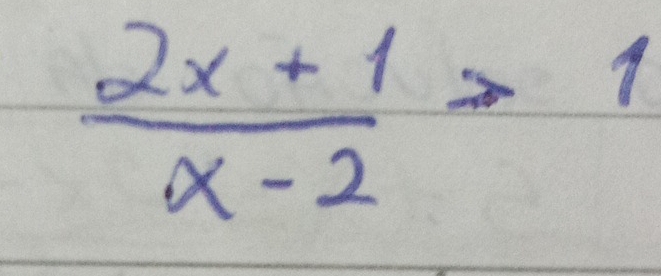 (2x + 1)/(x - 2) > 1